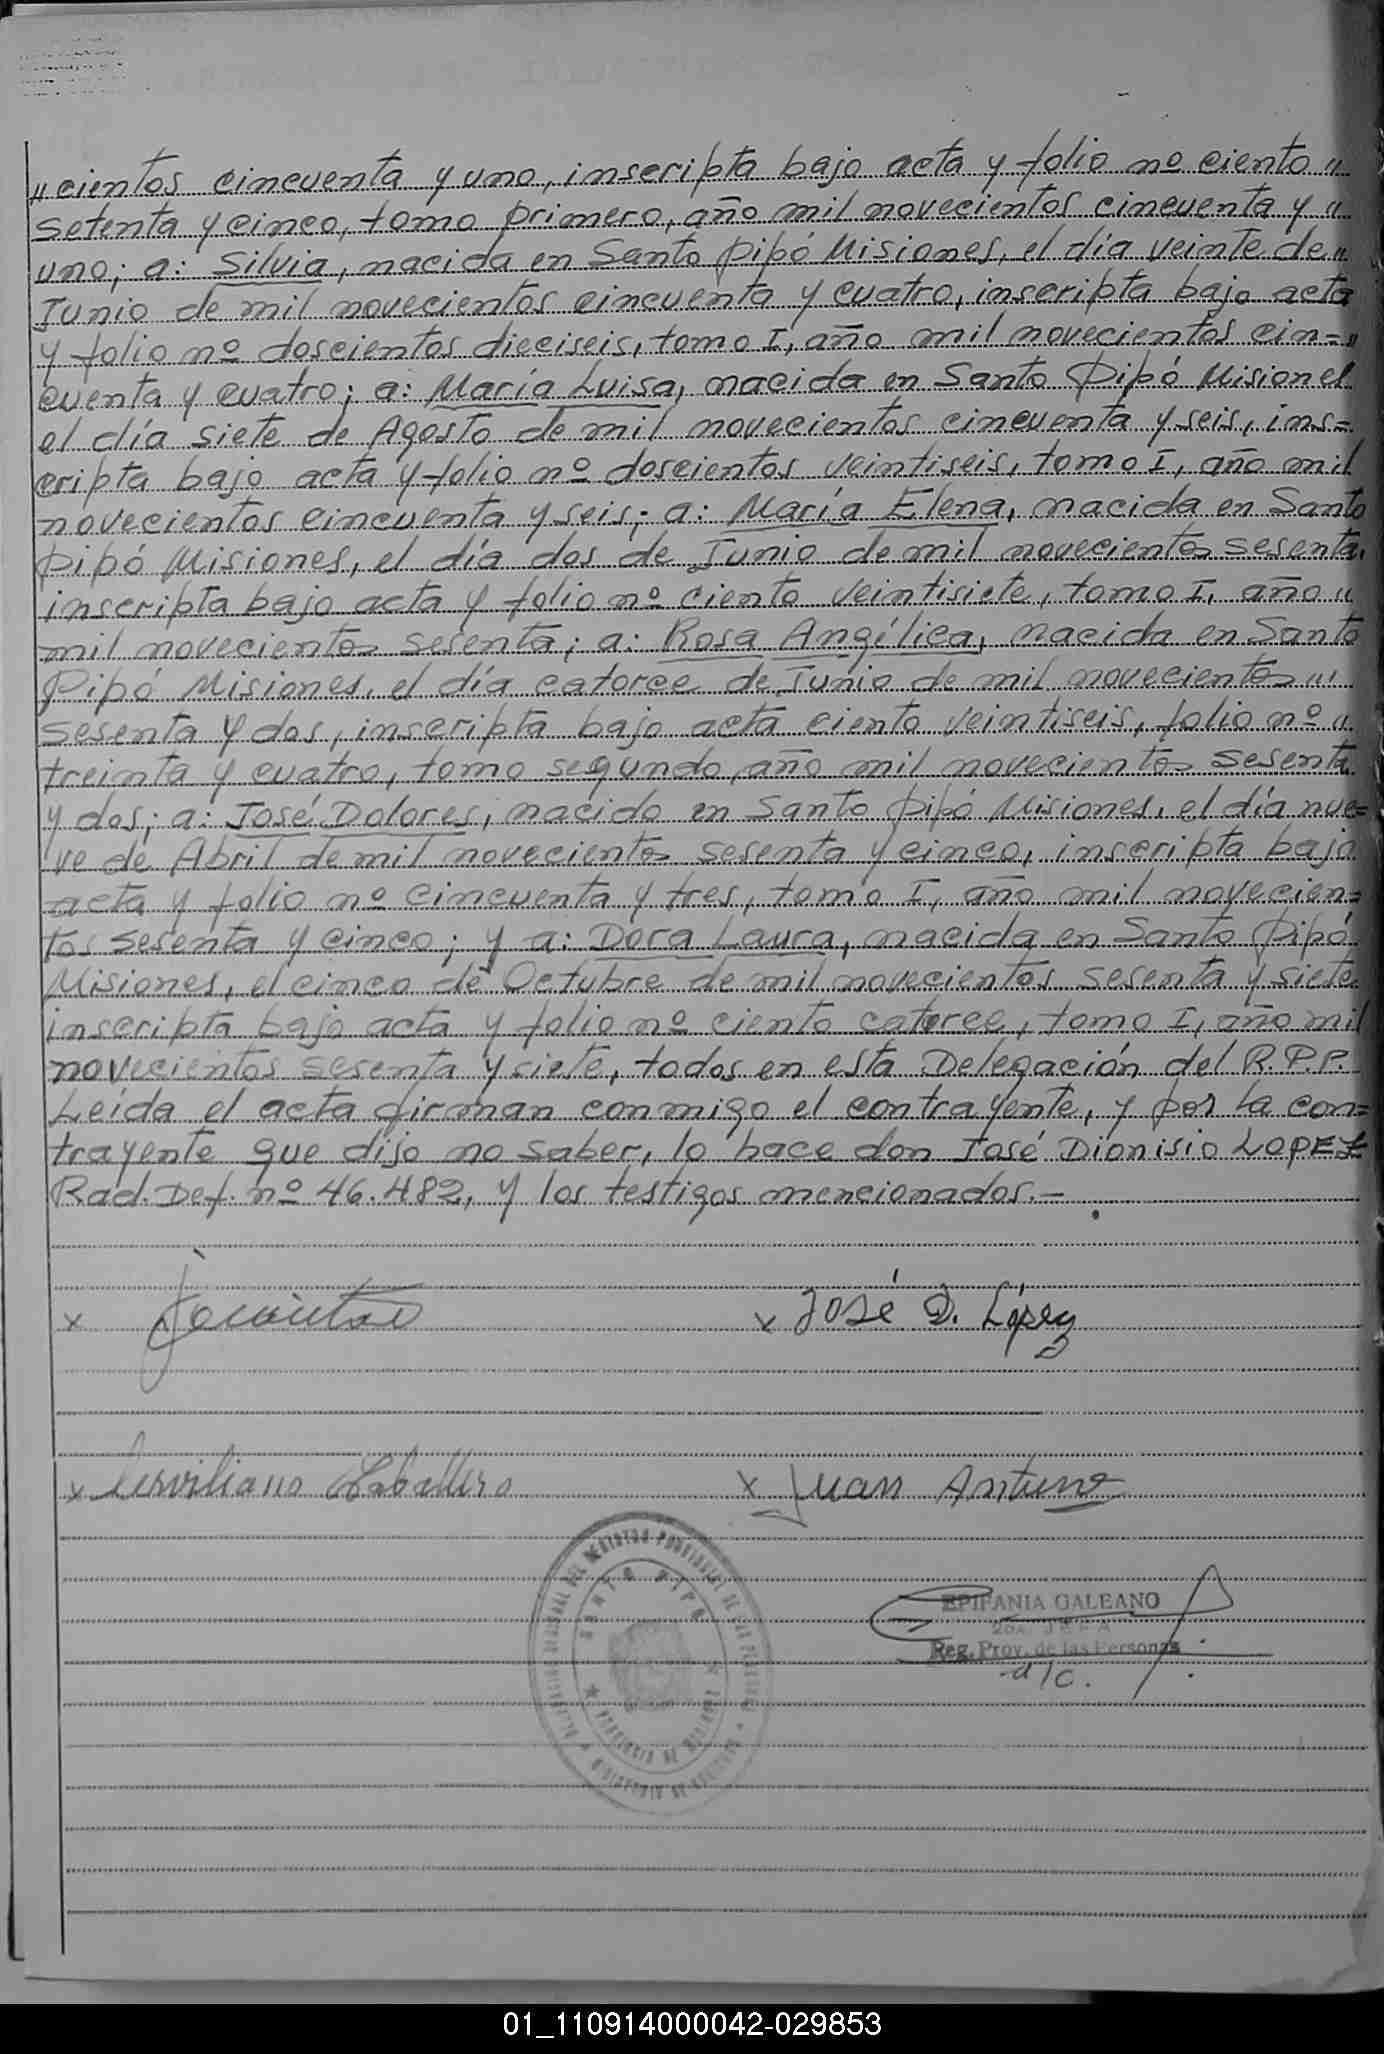 〃cientos cincuenta y uno, inscripta bajo acta y folio nº ciento 〃
setenta y cinco, tomo primero, año mil novecientos cincuenta y 〃
uno; a: Silvia, nacida en Santo Pipó Misiones, el día veinte de 〃
Junio de mil novecientos cincuenta y cuatro, inscripta bajo acta
y folio nº doscientos dieciseis, tomo I, año mil novecientos cin=〃
cuenta y cuatro; a: María Luisa, nacida en Santo Pipó Misiones
el día siete de Agosto de mil novecientos cincuenta y seis, ins=
cripta bajo acta y folio nº doscientos veintiseis, tomo I, año mil
novecientos cincuenta y seis; a: María Elena, nacida en Santo
Pipó Misiones, el día dos de Junio de mil novecientos sesenta,
inscripta bajo acta y folio nº ciento veintisiete, tomo I, año 〃
mil novecientos sesenta; a: Rosa Angélica, nacida en Santo
Pipó Misiones, el día catorce de Junio de mil novecientos 〃
sesenta y dos, inscripta bajo acta ciento veintiseis, folio nº 〃
treinta y cuatro, tomo segundo, año mil novecientos sesenta
y dos; a: José Dolores, nacido en Santo Pipó Misiones, el día nue=
ve de Abril de mil novecientos sesenta y cinco, inscripta bajo
acta y folio nº cincuenta y tres, tomo I, año mil novecien=
tos sesenta y cinco; y a: Dora Laura, nacida en Santo Pipó
Misiones, el cinco de Octubre de mil novecientos sesenta y siete
inscripta bajo acta y folio nº ciento catorce, tomo I, año mil
novecientos sesenta y siete, todos en esta Delegación del R.P.P.
Leída el acta firman conmigo el contrayente, y por la con=
trayente que dijo no saber, lo hace don José Dionisio LOPEZ
Rad. Def. nº 46.482, y los testigos mencionados.-
x
x José D. López
x Serviliano Caballero
x Juan Antunez
REGISTRO PROVINCIAL DE LAS PERSONAS
SANTO PIPO
PROVINCIA DE MISIONES
EPIFANIA GALEANO
2da. JEFA
Reg. Prov. de las Personas
a/c.
01_110914000042-029853